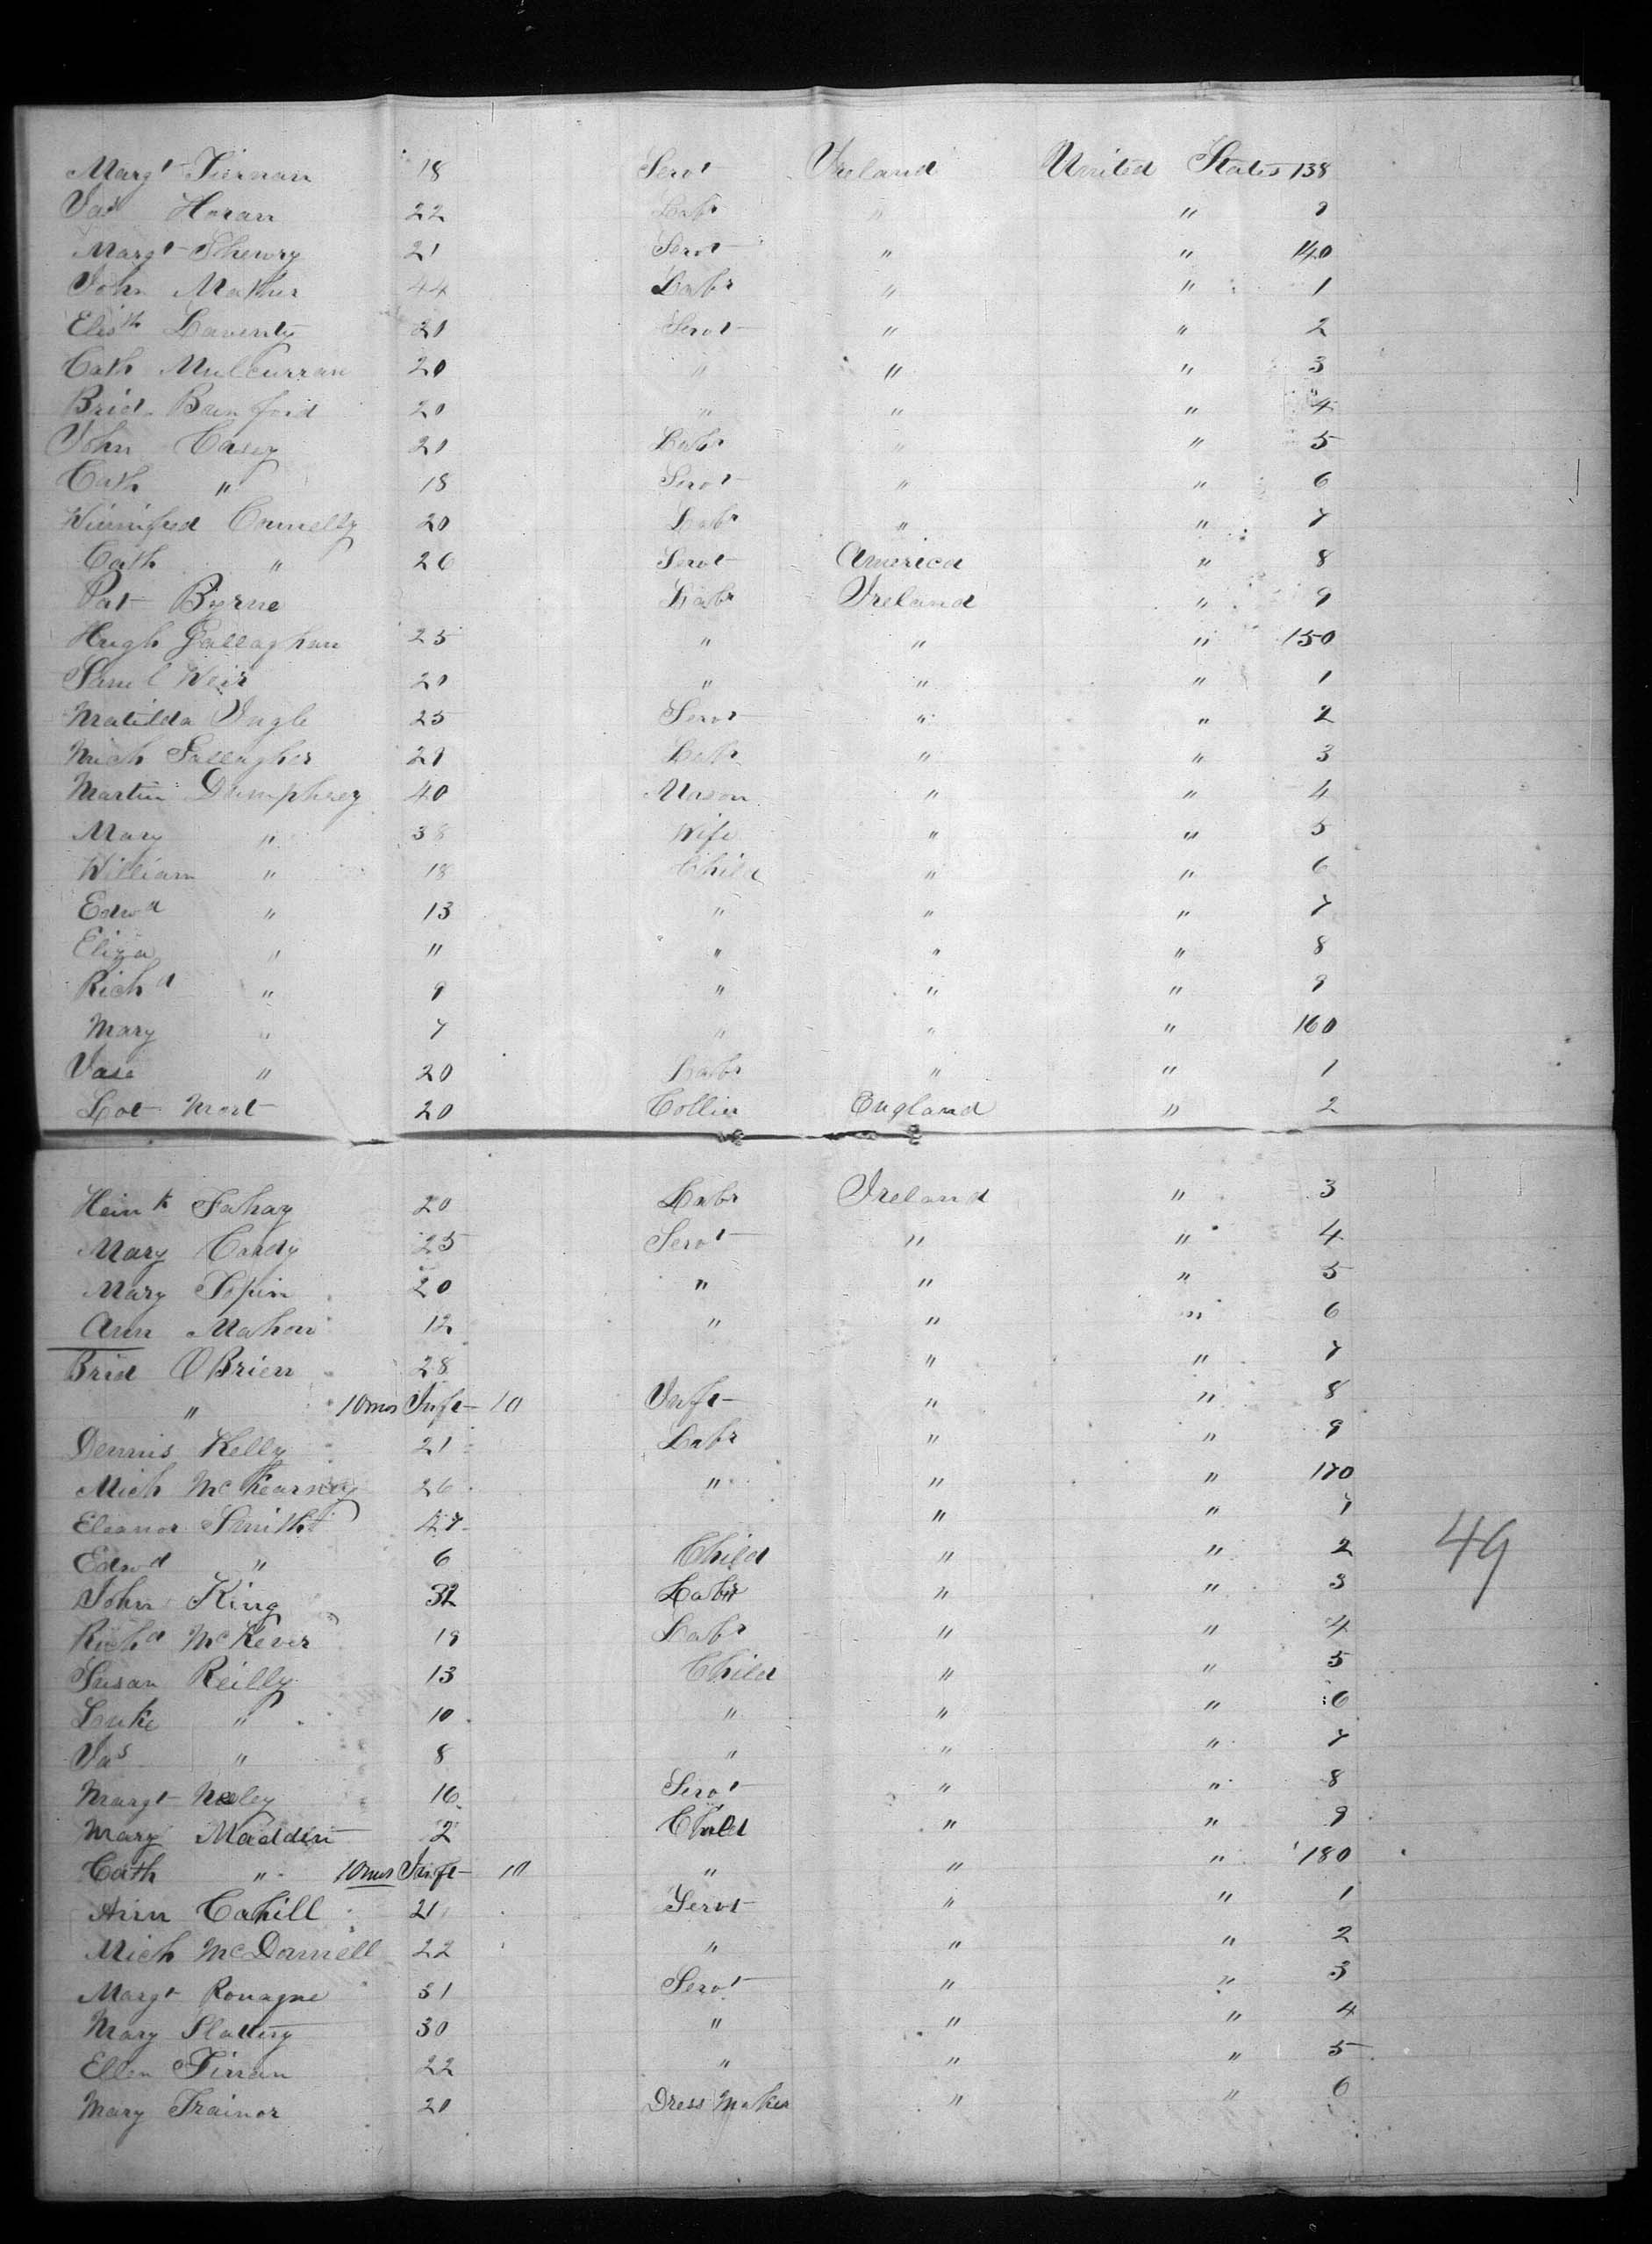 Margt Tiernan 18 Servt Ireland United States 138
Jas Horan 22 Labr " " 9
Margt 21 Servt " " 140
John Maher 44 Labr " " 1
Elisth Laverty 20 Servt " " 2
Cath Mulcurran 20 " " " 3
Brid Bunford 20 " " " 4
John Casey 20 Labr " " 5
Cath " 18 Servt " " 6
Winnifred Connelly 20 Labr " " 7
Cath " 26 Servt America " 8
Pat Byrne Labr Ireland " 9
Hugh Gallaghan 25 " " " 150
Saml Weir 20 " " " 1
Matilda 25 Servt " " 2
Mich Gallagher 21 Labr " " 3
Martin Dumphrey 40 Mason " " 4
Mary " 38 Wife " " 5
William " 18 Child " " 6
Edwd " 13 " " " 7
Eliza " 11 " " " 8
Richd " 9 " " " 9
Mary " 7 " " " 160
Jase " 20 Labr " " 1
Lot Mort 20 Collier England " 2
Fahay 20 Labr Ireland " 3
Mary Cardy 25 Servt " " 4
Mary Topin 20 " " " 5
Ann Mahon 12 " " " 6
Brid O Brien 28 " " 7
" 10mos Inft 10 Inft " " 8
Dennis Kelly 21 Labr " " 9
Mich McKearney 26 " " " 170
Eleanor Smith 47 " " 1
Edwd " 6 Child " " 2
John King 32 Labr " " 3
Richd McKever 19 Labr " " 4
Susan Reilly 13 Child " " 5
Luke " 10 " " " 6
Jas " 8 " " " 7
Margt Neeley 16 Servt " " 8
Mary Madden 2 Child " " 9
Cath " 10mos Inft 10 " " " 180
Ann Cahill 21 Servt " " 1
Mich McDonnell 22 " " " 2
Margt Ronagne 31 Servt " " 3
Mary Slattery 30 " " " 4
Ellen Tirran 22 " " " 5
Mary Trainor 20 Dress Maker " " 6
49